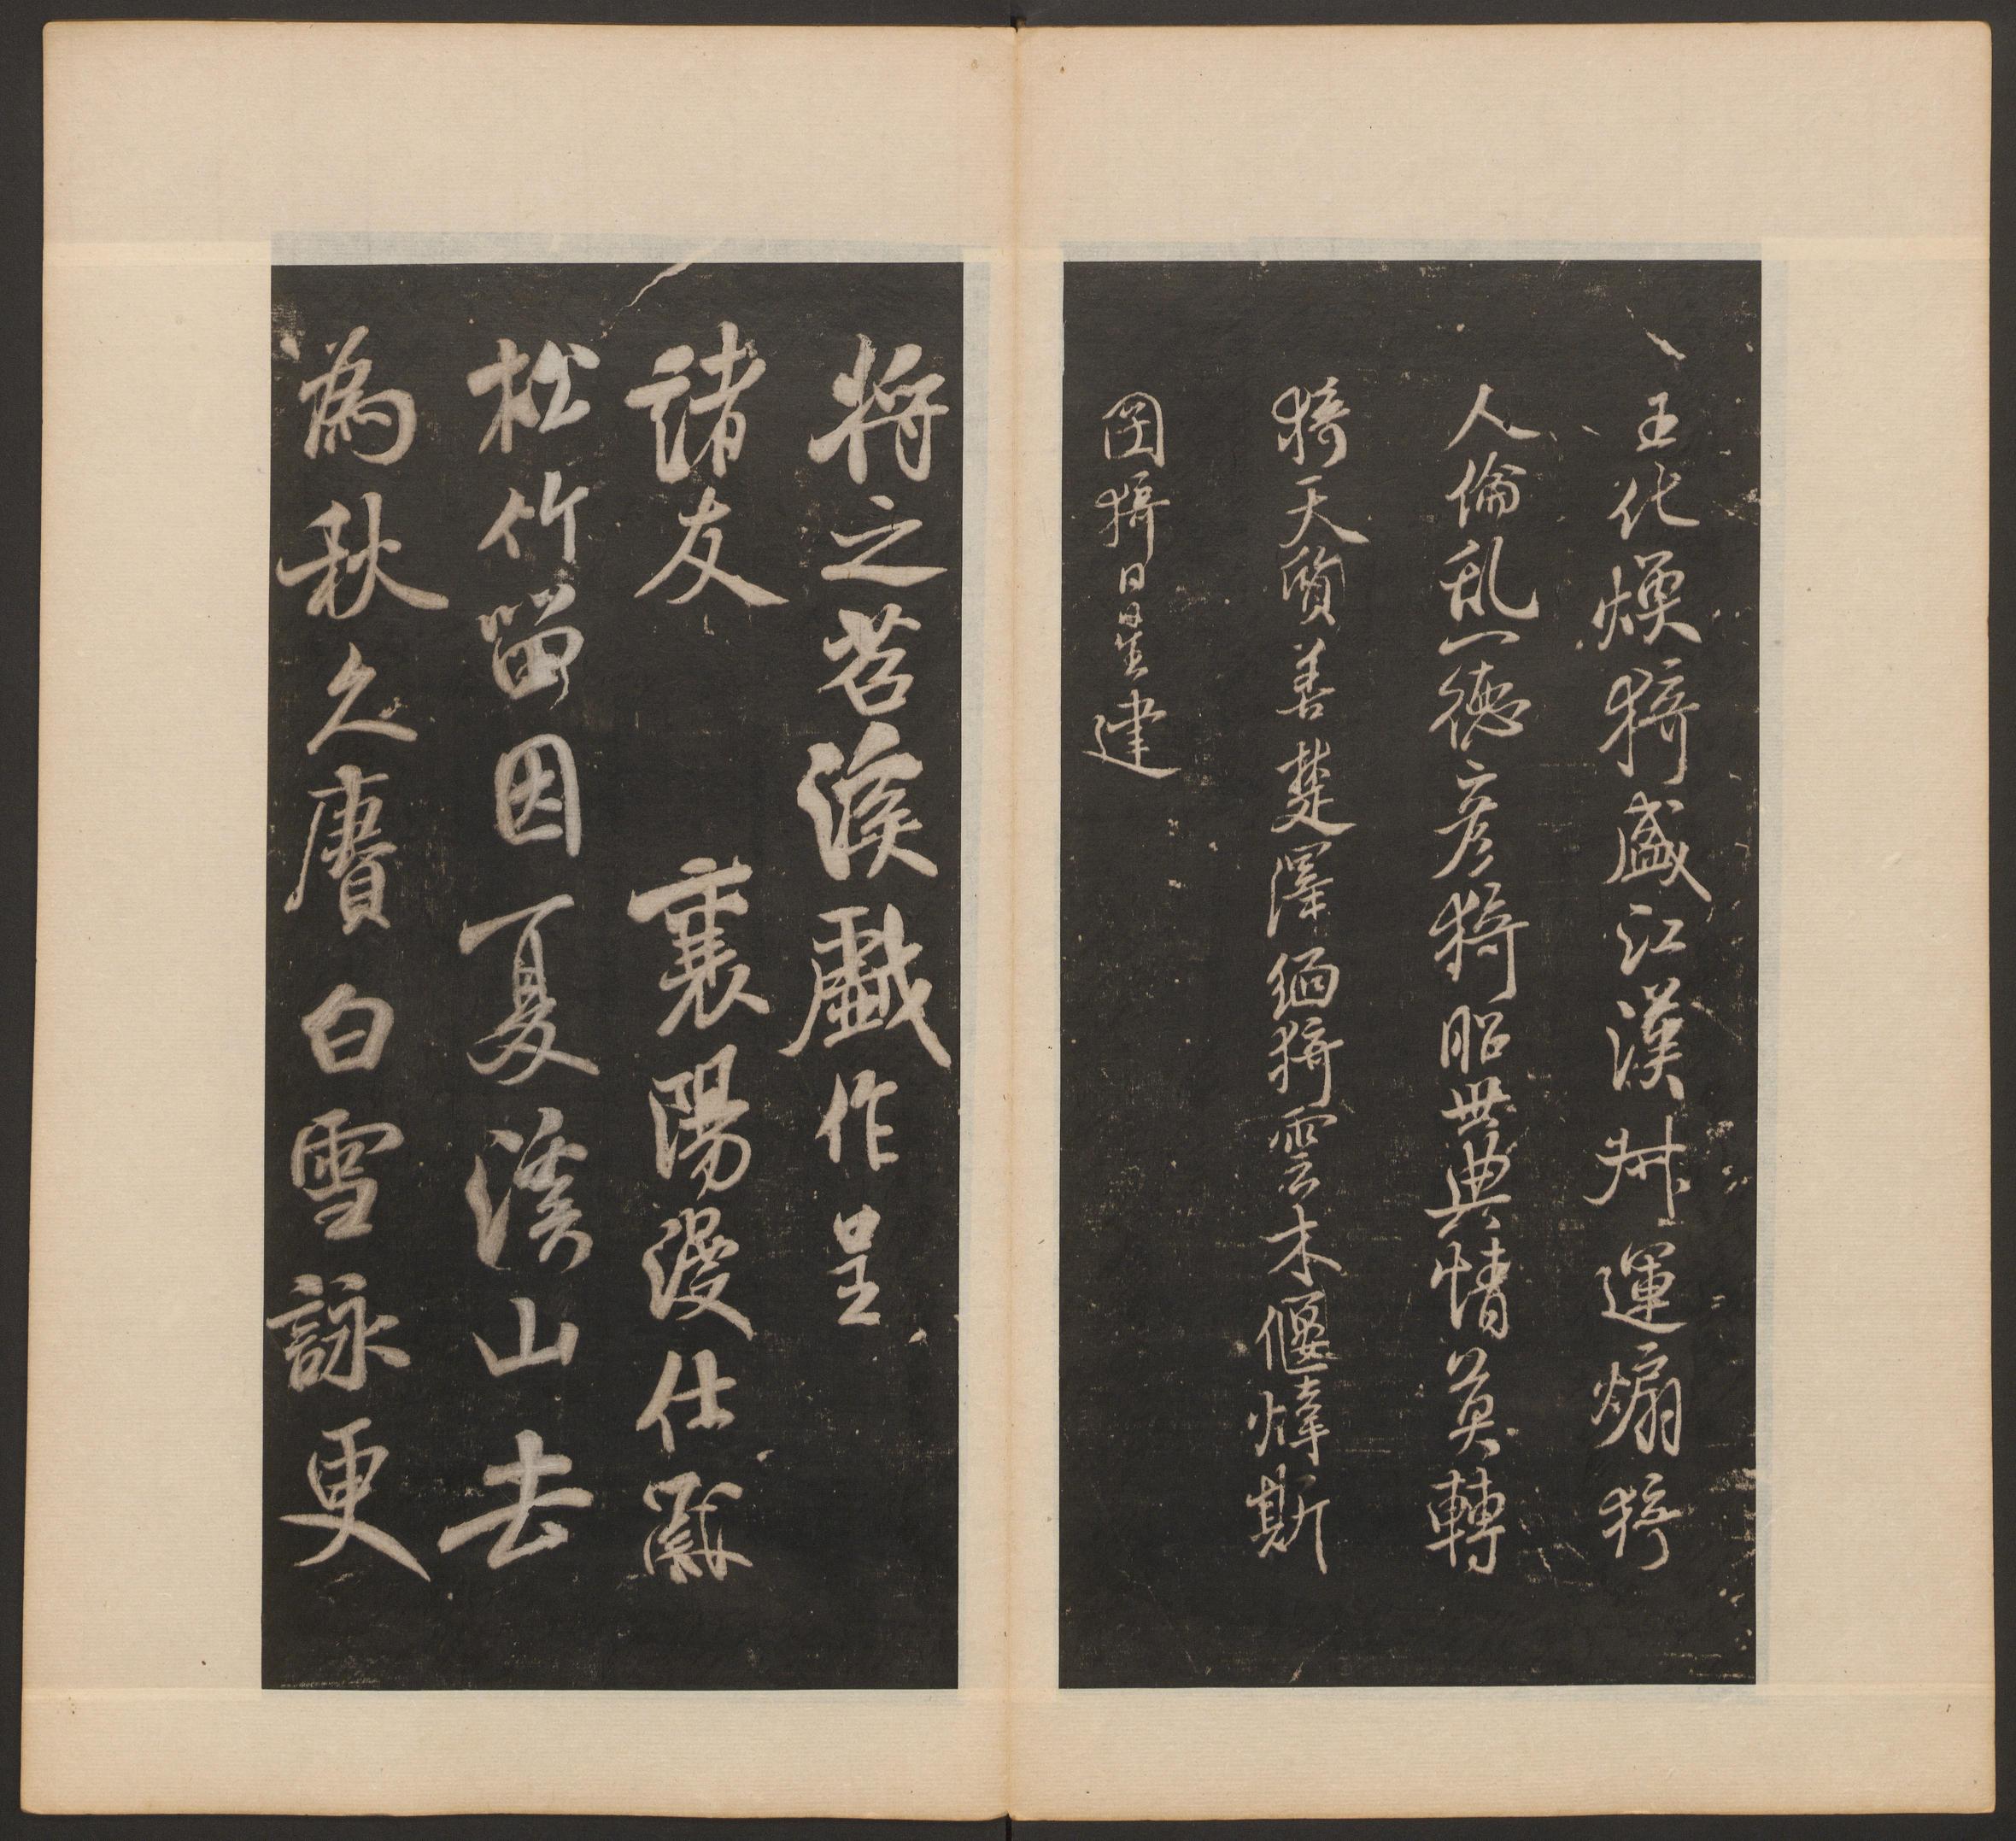 王化煥猗盛江漢舛運煽猗
人倫乱一德彥猗昭世典情莫轉
猗天質善楚澤緬猗雲木偃煒斯
圖猗日星建
將之苕溪戲作呈
諸友 襄陽漫仕黻
松竹留因夏溪山去
為秋久賡白雪詠更